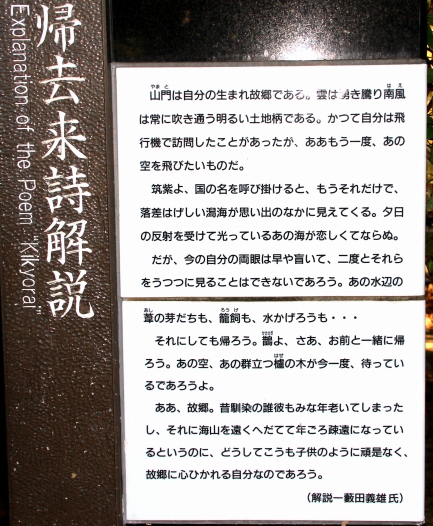 帰去来詩解説
Explanation of the Poem "Kikyorai"
山門は自分の生まれ故郷である。雲は湧き騰り南風
は常に吹き通う明るい土地柄である。かつて自分は飛
行機で訪問したことがあったが、ああもう一度、あの
空を飛びたいものだ。
筑紫よ、国の名を呼び掛けると、もうそれだけで、
落差はげしい潟海が思い出のなかに見えてくる。夕日
の反射を受けて光っているあの海が恋しくてならぬ。
だが、今の自分の両眼は早や盲いて、二度とそれら
をうつつに見ることはできないであろう。あの水辺の
葦の芽だちも、籠飼も、水かげろうも・・・
それにしても帰ろう。鵲よ、さあ、お前と一緒に帰
ろう。あの空、あの群立つ櫨の木が今一度、待ってい
るであろうよ。
ああ、故郷。昔馴染の誰彼もみな年老いてしまった
し、それに海山を遠くへだてて年ごろ疎遠になってい
るというのに、どうしてこうも子供のように頑是なく、
故郷に心ひかれる自分なのであろう。
(解説―藪田義雄氏)